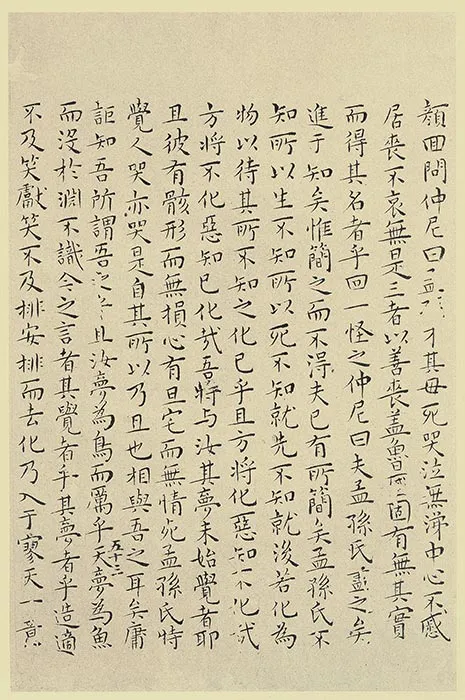 顏回問仲尼曰孟孫才其母死哭泣無涕中心不慼
居喪不哀無是三者以善喪蓋魯國固有無其實
而得其名者乎回一怪之仲尼曰夫孟孫氏盡之矣
進于知矣惟簡之而不得夫已有所簡矣孟孫氏不
知所以生不知所以死不知就先不知就後若化為
物以待其所不知之化已乎且方將化惡知不化哉
方將不化惡知已化哉吾特与汝其夢未始覺者耶
且彼有骸形而無損心有旦宅而無情死孟孫氏特
覺人哭亦哭是自其所以乃且也相與吾之耳矣庸
詎知吾所謂吾之乎且汝夢為鳥而厲乎天夢為魚
而沒於淵不識今之言者其覺者乎其夢者乎造適
不及笑獻笑不及排安排而去化乃入于寥天一